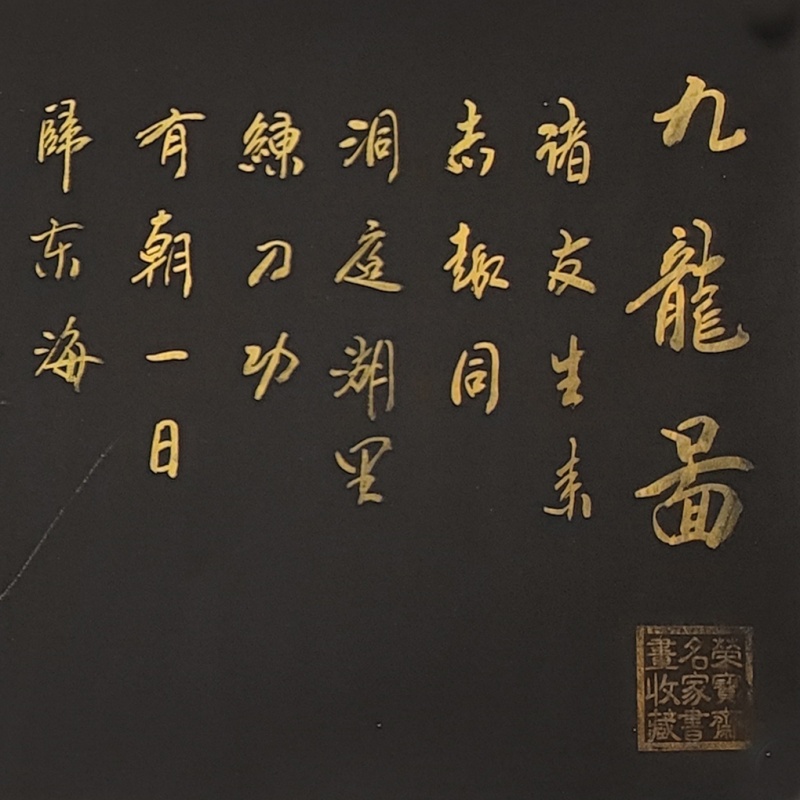 九龍圖
诸友生来
志趣同
洞庭湖里
練刀功
有朝一日
歸东海
榮寶齋
名家書
畫收藏